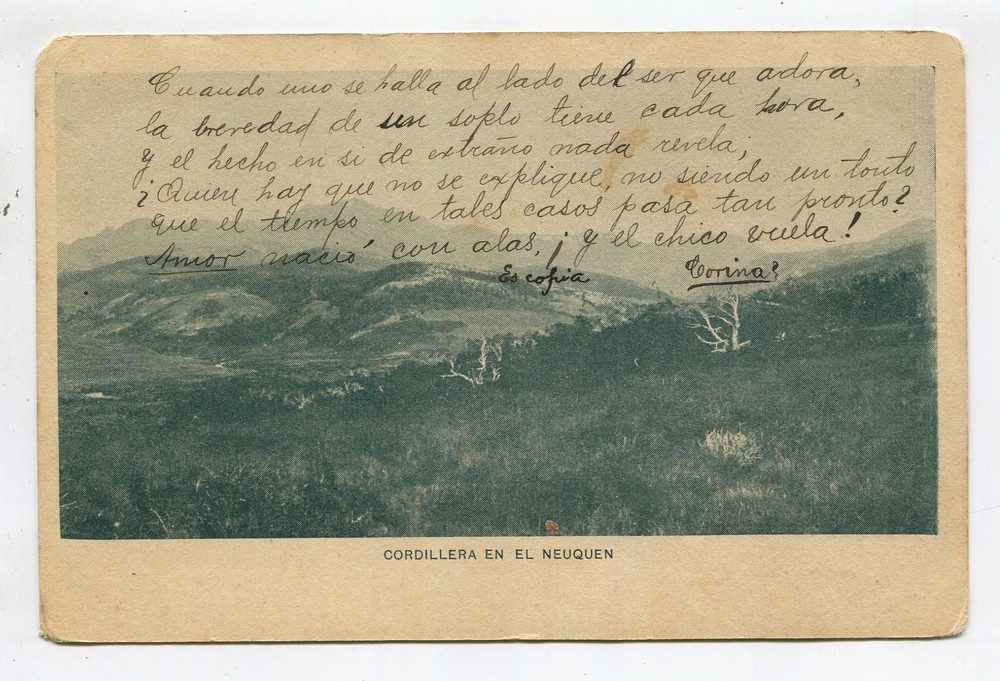 Cuando uno se halla al lado del ser que adora,
la brevedad de un soplo tiene cada hora,
y el hecho en si de extraño nada revela;
¿Quien hay que no se explique, no siendo un tonto
que el tiempo en tales casos pasa tan pronto?
Amor nació con alas, ¡ y el chico vuela!
Es copia Corina
CORDILLERA EN EL NEUQUEN